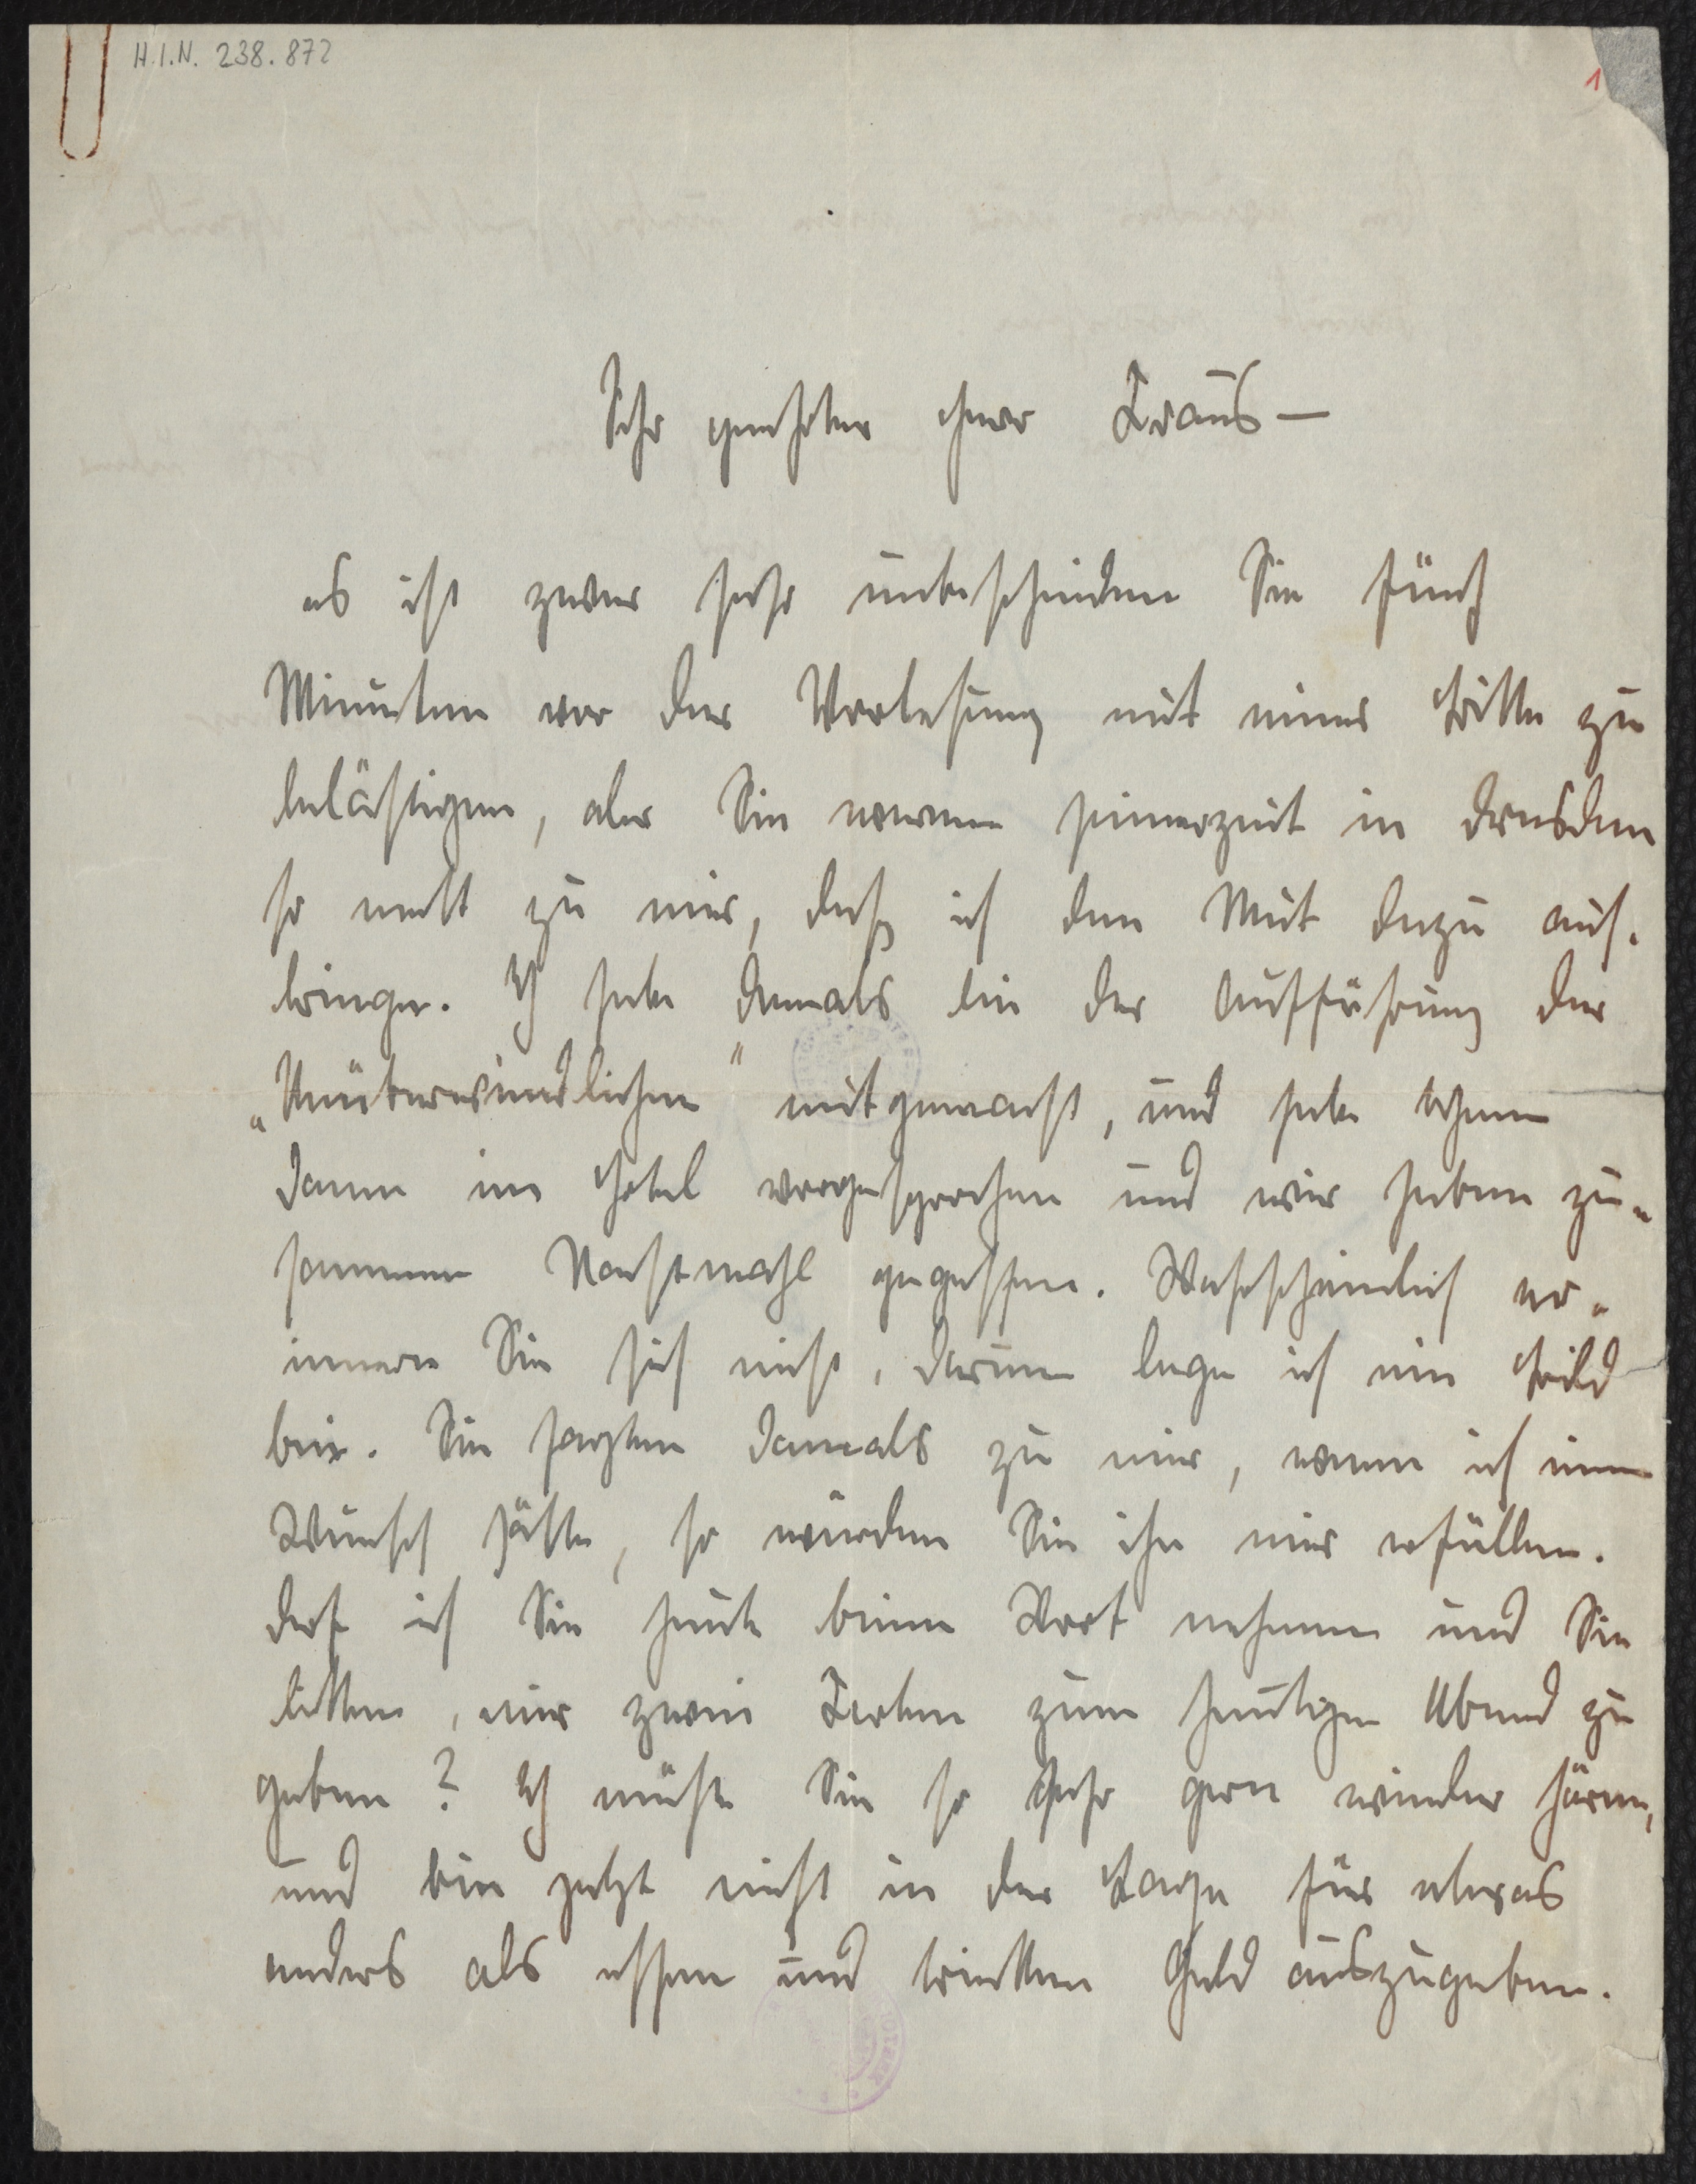 H.I.N. 238.872
1
Sehr geehrter Herr Kraus —
es ist zwar sehr unbescheiden Sie fünf
Minuten vor der Vorlesung mit einer Bitte zu
belästigen, aber Sie waren seinerzeit in Dresden
so nett zu mir, daß ich den Mut dazu auf-
bringe. Ich habe damals bei der Aufführung der
„Unüberwindlichen" mitgemacht, und habe Ihnen
dann im Hotel vorgesprochen und wir haben zu-
sammen Nachtmahl gegessen. Wahrscheinlich er-
innern Sie sich nicht, darum lege ich ein Bild
bei. Sie sagten damals zu mir, wenn ich einen
Wunsch hätte, so würden Sie ihn mir erfüllen.
Darf ich Sie heute beim Wort nehmen und Sie
bitten, mir zwei Karten zum heutigen Abend zu
geben? Ich möchte Sie so sehr gern wieder hören,
und bin jetzt nicht in der Lage für etwas
anders als essen und trinken Geld auszugeben.